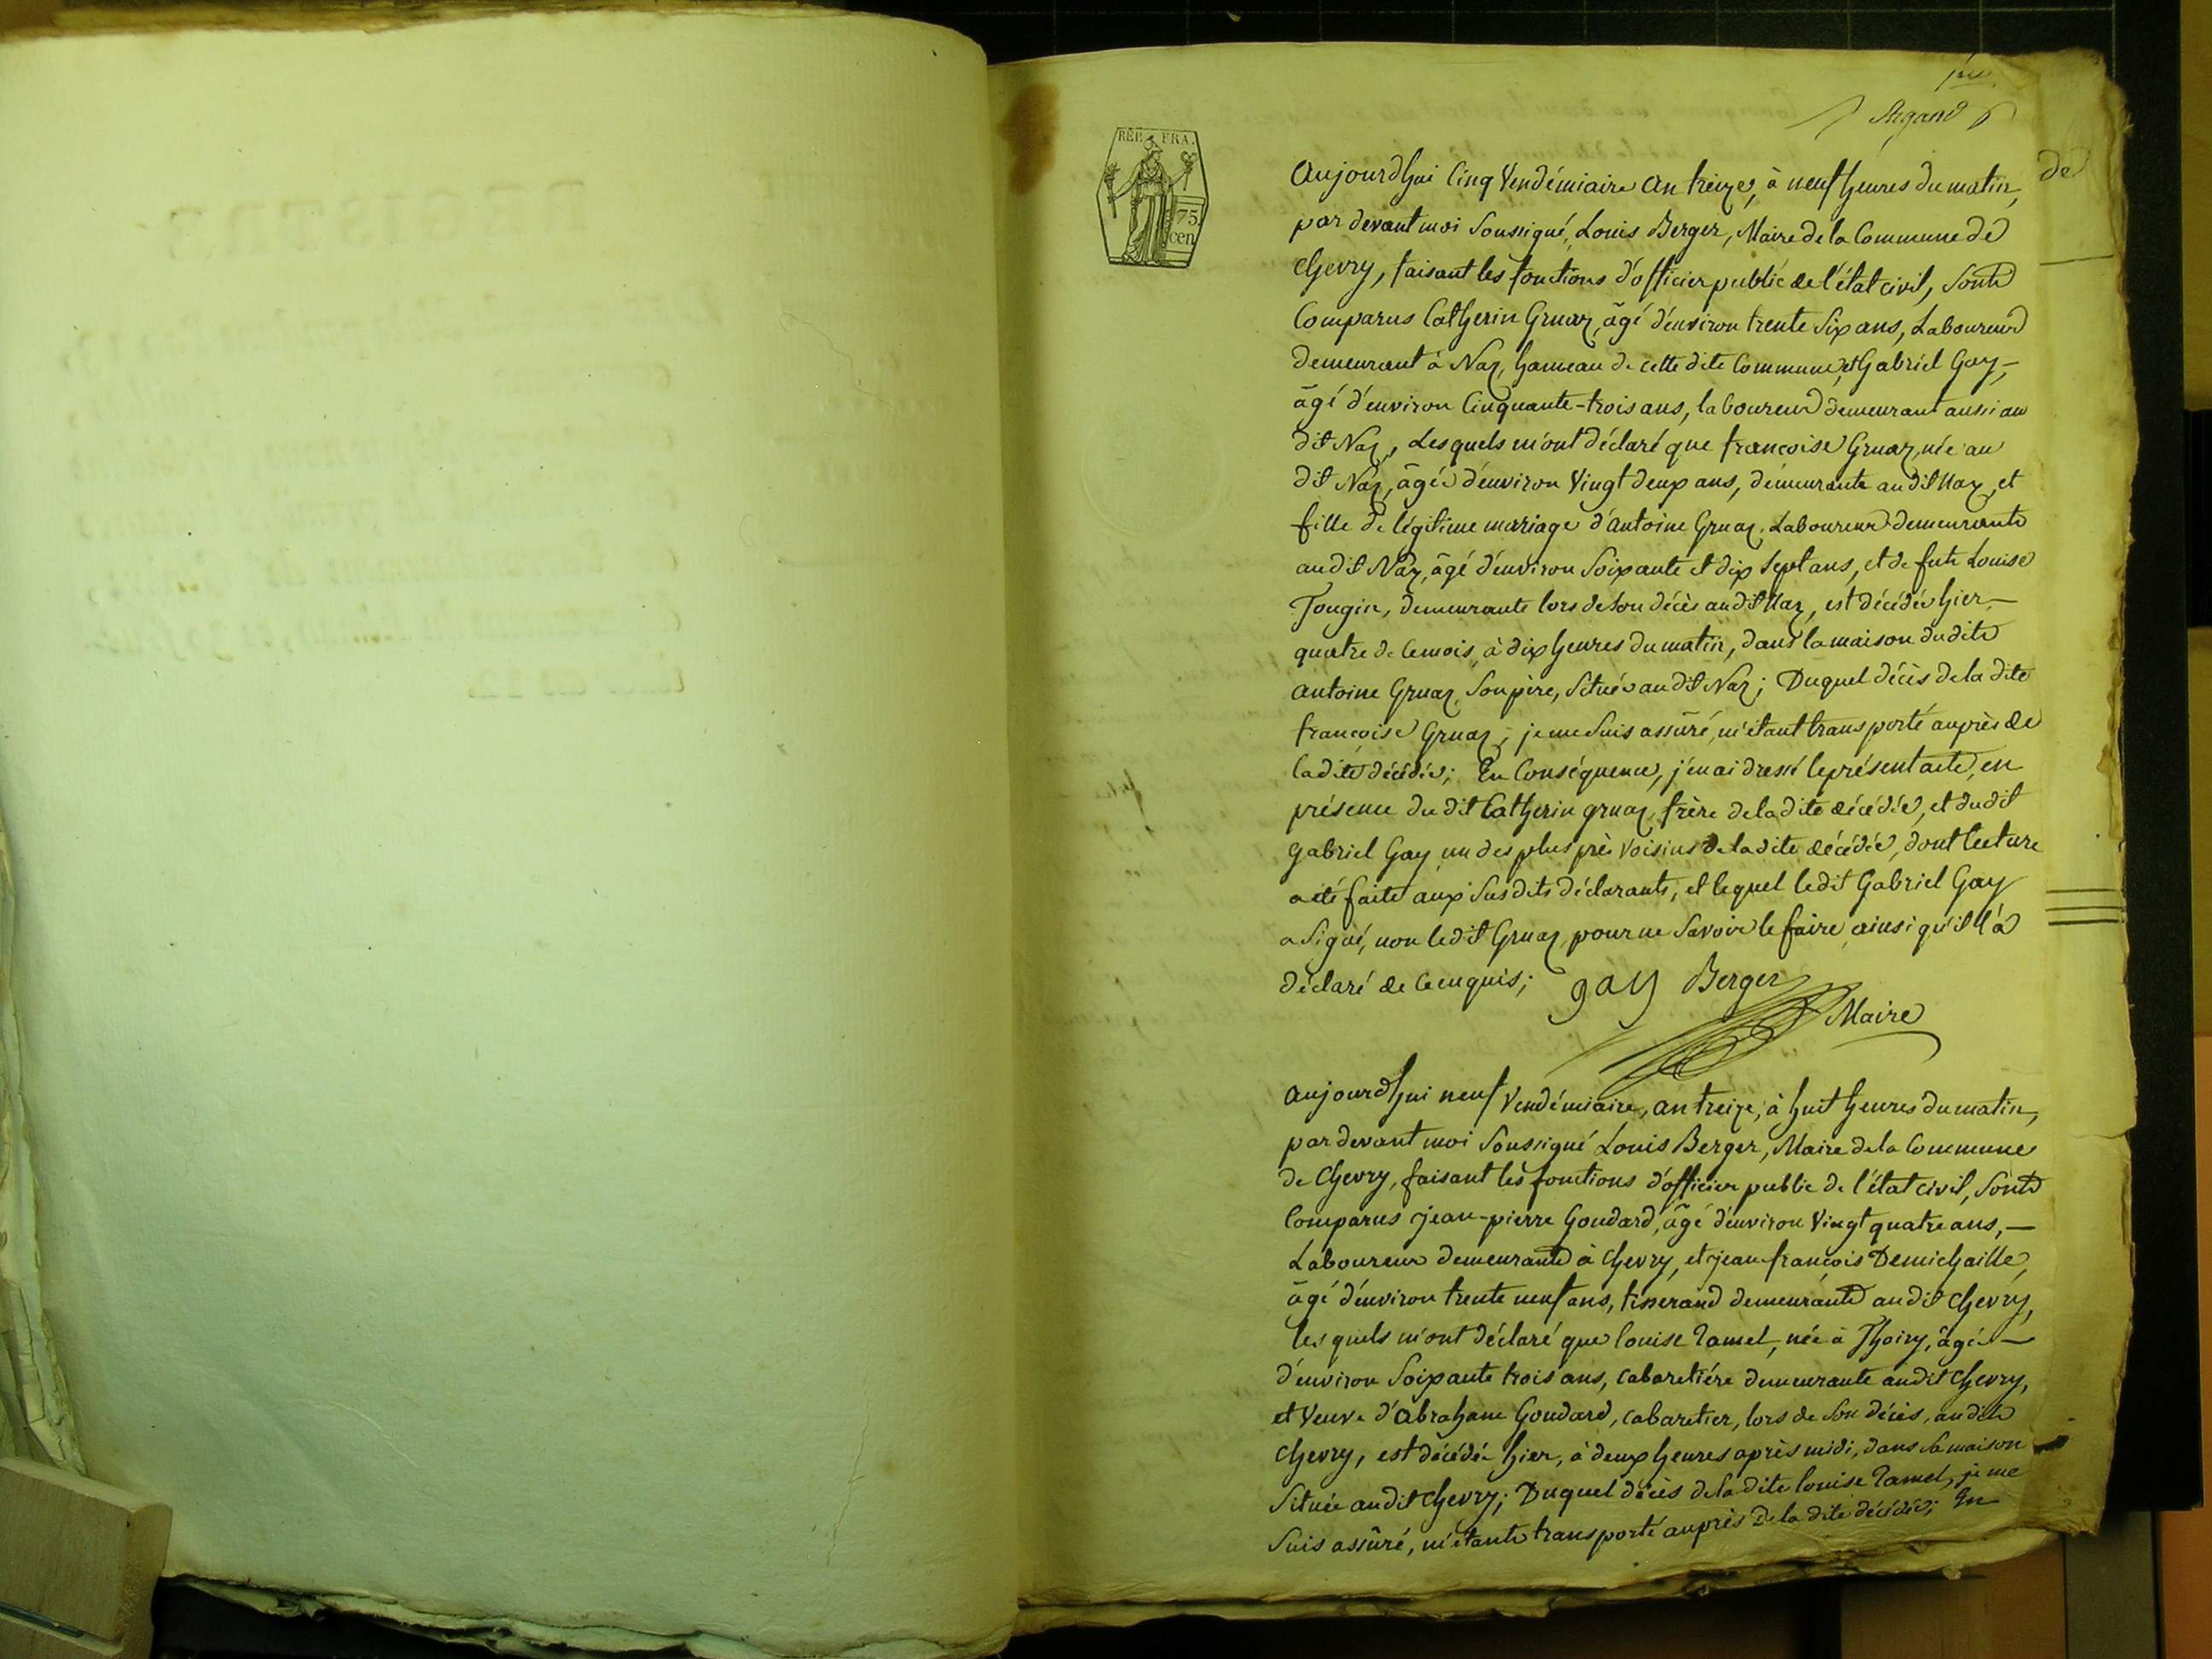 1re
Argand
RÉP. FRA.
75
cen
de
Aujourdhui Cinq Vendémiaire an treize, à neuf heures du matin,
par devant moi Soussigné, Louis Berger, Maire de la Commune de
Chevry, faisant les fonctions d'officier public de l'état civil, Sont
Comparus Catherin Gruaz, âgé d'environ trente Six ans, Laboureur
demeurant à Naz, hameau de cette dite Commune, et Gabriel Gay,-
âgé d'environ Cinquante-trois ans, laboureur demeurant aussi au
dit Naz, Lesquels m'ont déclaré que françoise Gruaz, née au
dit Naz, âgée d'environ Vingt deux ans, demeurante au dit Naz, et
fille de légitime mariage d'antoine Gruaz, Laboureur demeurant
au dit Naz, âgé d'environ Soixante et dix Sept ans, et de fute Louise
Tougin, demeurante lors de Son décès au dit Naz, est décédée hier-
quatre de Ce mois, à dix heures du matin, dans la maison du dit
antoine Gruaz, Son père, Située au dit Naz; Duquel décès de la dite
françoise Gruaz, je me Suis assûré, m'étant transporté auprès de
la dite décédée; En Conséquence, j'en ai dressé le présent acte, en
présence du dit Catherin gruaz, frère de la dite décédée, et du dit
gabriel Gay, un des plus près Voisins de la dite décédée, dont lecture
a été faite aux Susdits déclarants, et lequel le dit Gabriel Gay
a Signé, non le dit Gruaz, pour ne Savoir le faire ainsi qu'il l'a
déclaré de Ce enquis; gay Berger
Maire
Aujourdhui neuf Vendémiaire, an treize, à huit heures du matin,
par devant moi Soussigné Louis Berger, Maire de la Commune
de Chevry, faisant les fonctions d'officier public de l'état civil, Sont
Comparus jean-pierre Goudard, âgé d'environ Vingt quatre ans,-
Laboureur demeurant à Chevry, et jean françois Demichaille,
âgé d'environ trente neuf ans, tisserand demeurant au dit Chevry,
les quels m'ont déclaré que louise Ramel, née à Thoiry, âgée-
d'environ Soixante trois ans, cabaretiére demeurante au dit Chevry,
et Veuve d'Abraham Goudard, cabaretier, lors de Son décès, au dit
Chevry, est décédée hier, à deux heures après midi, dans Sa maison
Située au dit Chevry; Duquel décès de la dite louise Ramel, je me
Suis assûré, m'étant transporté auprès de la dite décédée; En